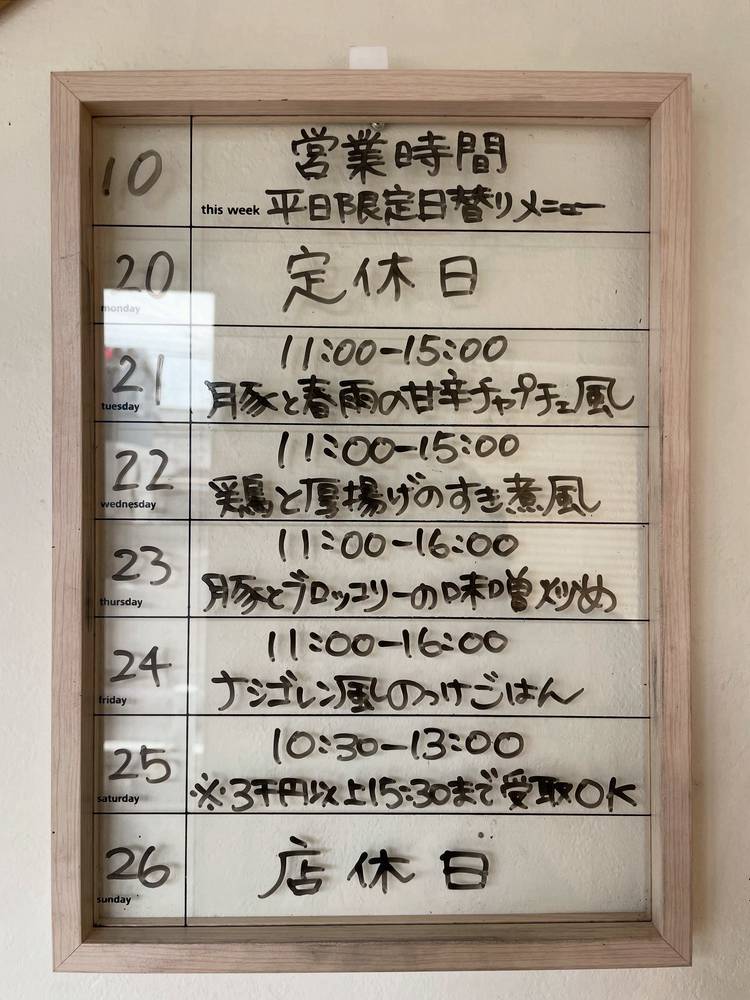 10
営業時間
this week 平日限定日替りメニュー
20
monday
定休日
21
tuesday
11:00-15:00
豚と春雨の甘辛チャプチェ風
22
wednesday
11:00-15:00
鶏と厚揚げのすき煮風
23
thursday
11:00-16:00
豚とブロッコリーの味噌炒め
24
friday
11:00-16:00
ナシゴレン風のっけごはん
25
saturday
10:30-13:00
※3千円以上15:30まで受取OK
26
sunday
店休日